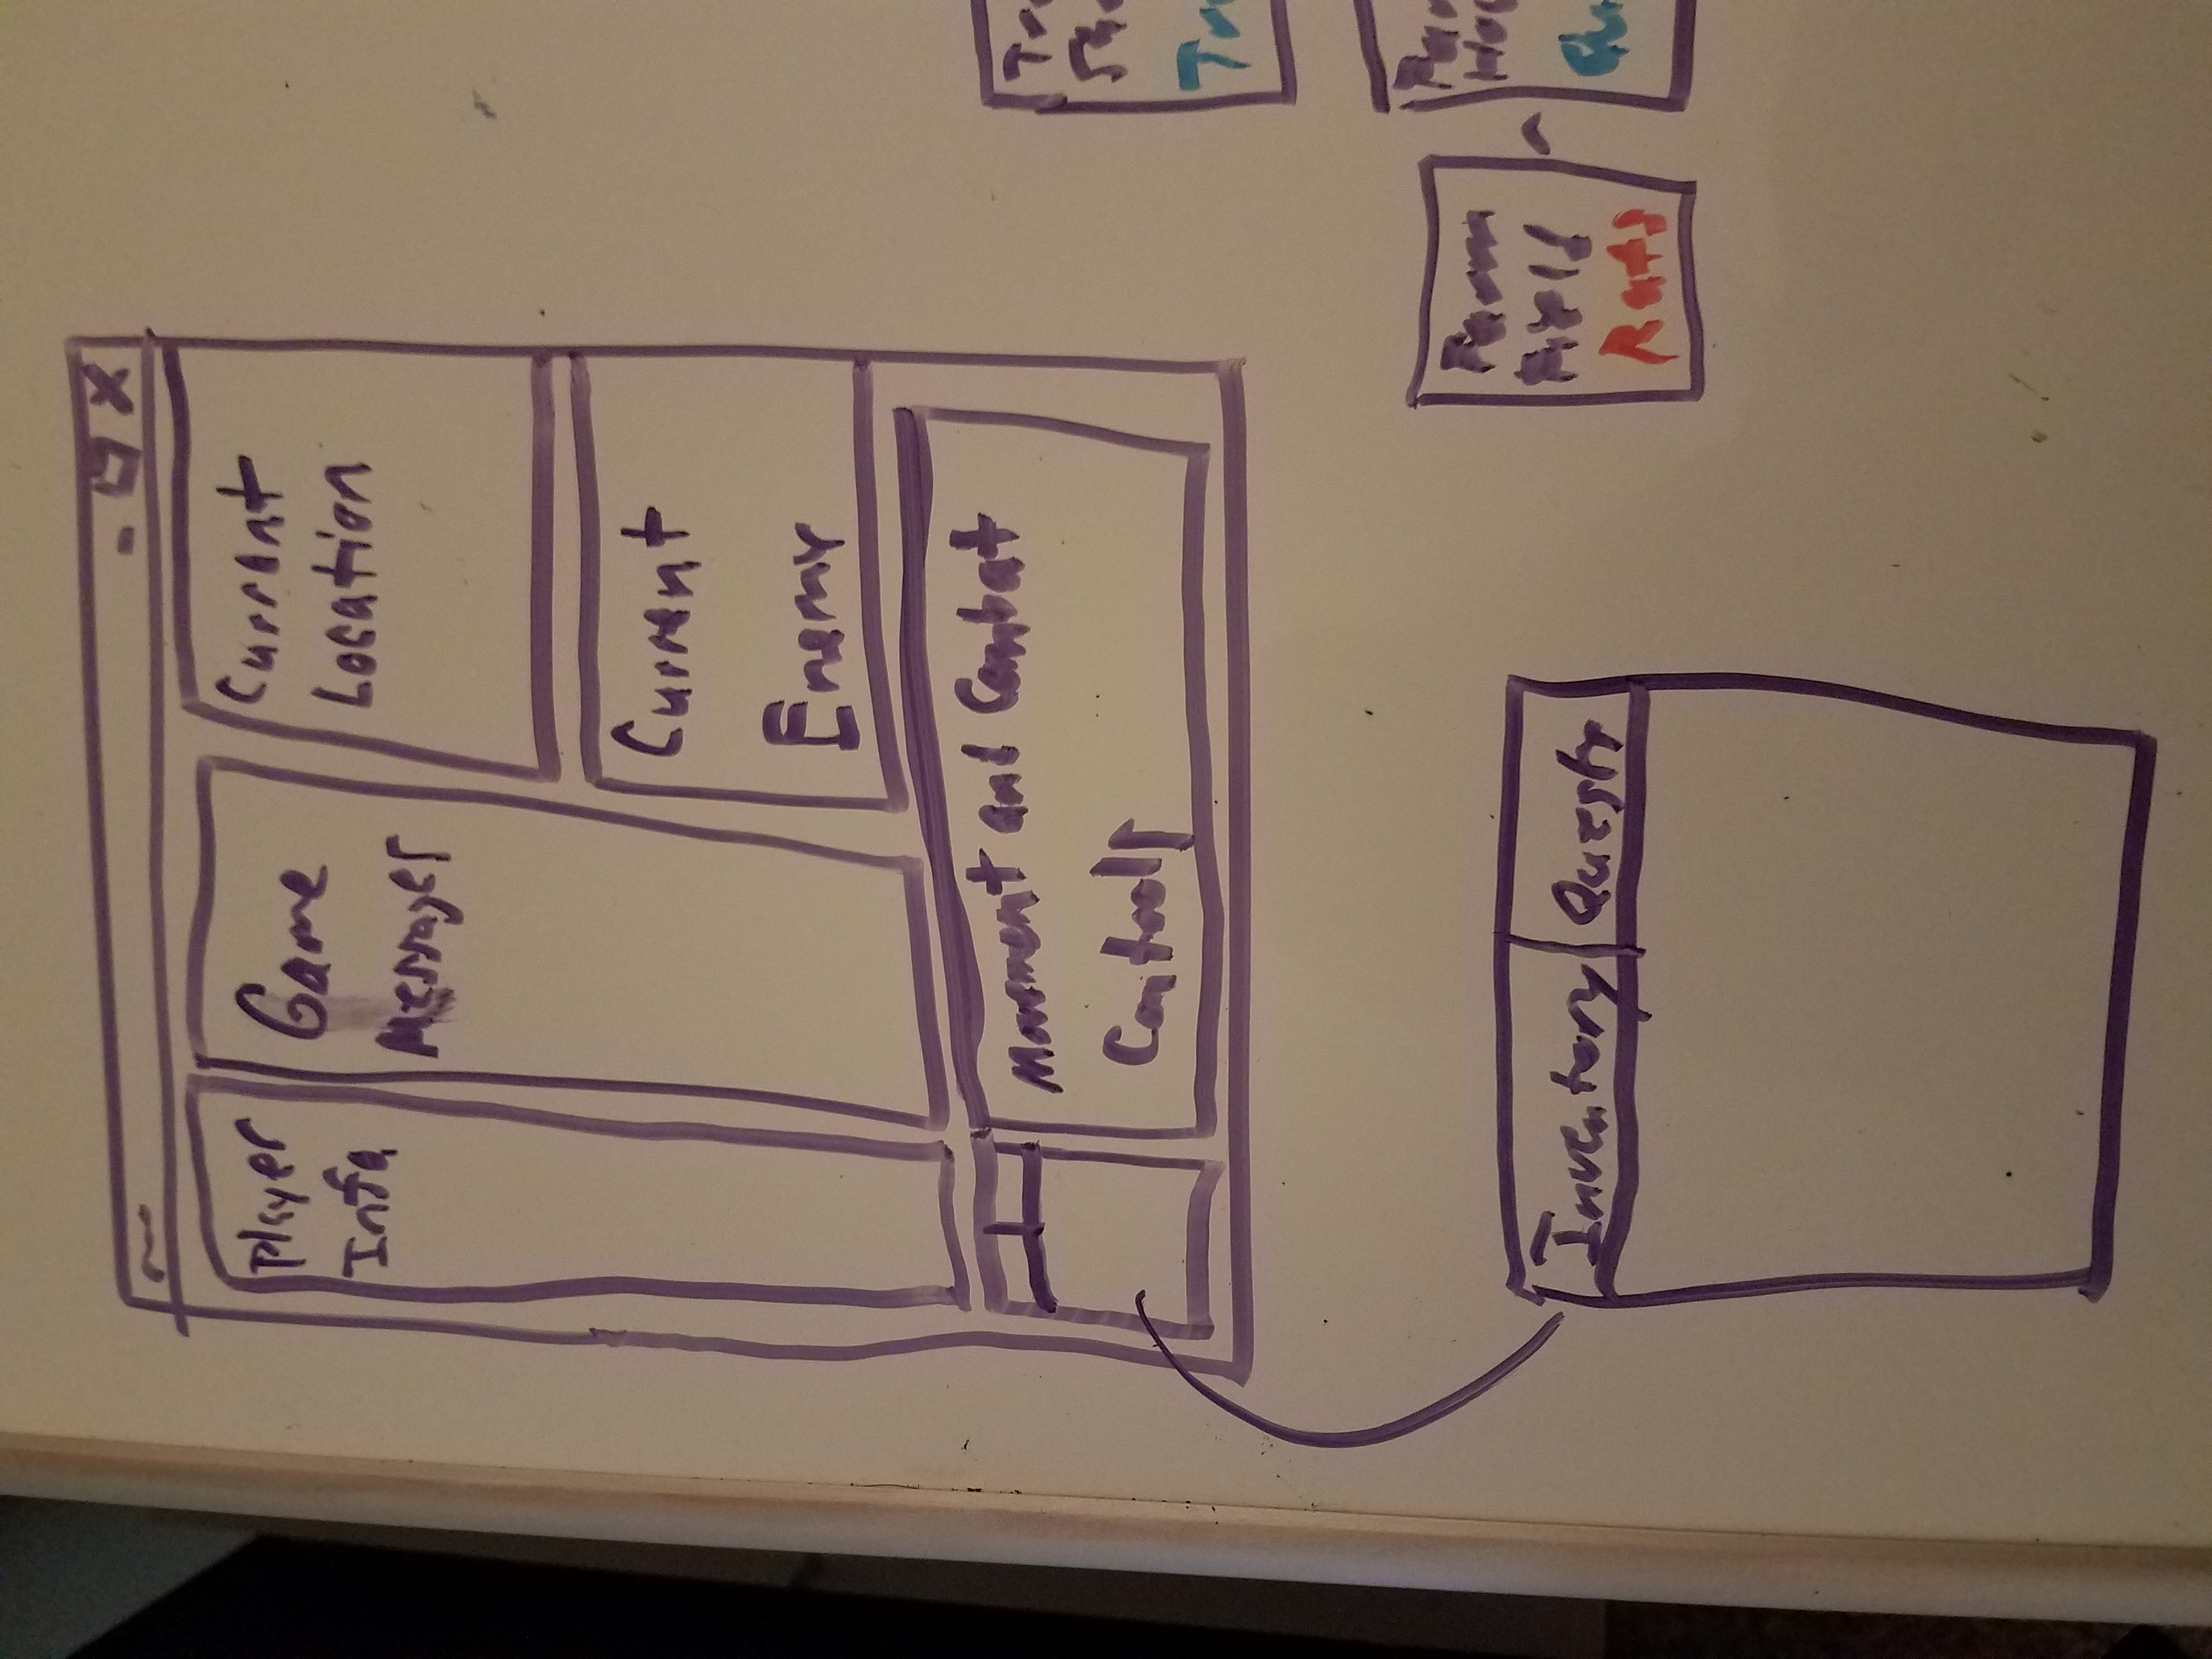 Player
Info
Game
Messages
Current
Location
Current
Enemy
Movement and Combat
Controls
Inventory Quests
Farm
Field
Rats